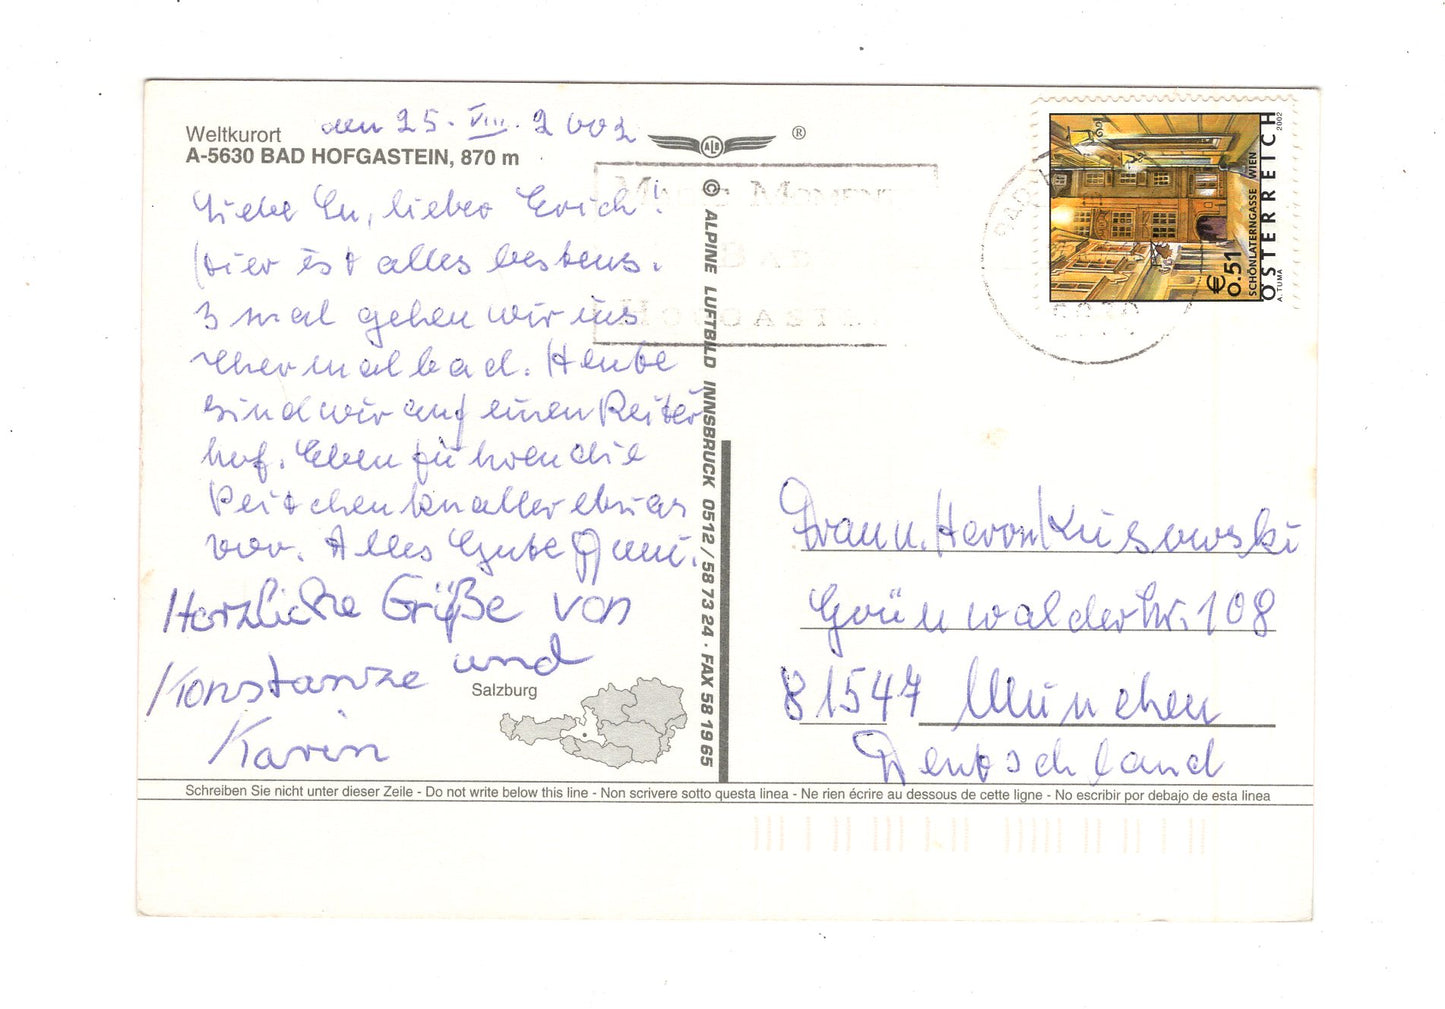 Weltkurort
A-5630 BAD HOFGASTEIN, 870 m
den 25. VIII. 2002
®
Liebe Lu, lieber Erich!
Hier ist alles bestens.
3 mal gehen wir ins
Thermalbad. Heute
sind wir auf einen Reiter
hof. Eben führen die
Peitschenknaller etwas
vor. Alles Gute
Herzliche Grüße von
Konstanze und
Karin
Salzburg
© ALPINE LUFTBILD INNSBRUCK 0512 / 58 73 24 · FAX 58 19 65
€ 0.51
SCHÖNLATERNGASSE WIEN
ÖSTERREICH
A. TUMA
2002
Frau u. Herrn
Grünwalderstr. 108
81547 München
Deutschland
Schreiben Sie nicht unter dieser Zeile - Do not write below this line - Non scrivere sotto questa linea - Ne rien écrire au dessous de cette ligne - No escribir por debajo de esta linea